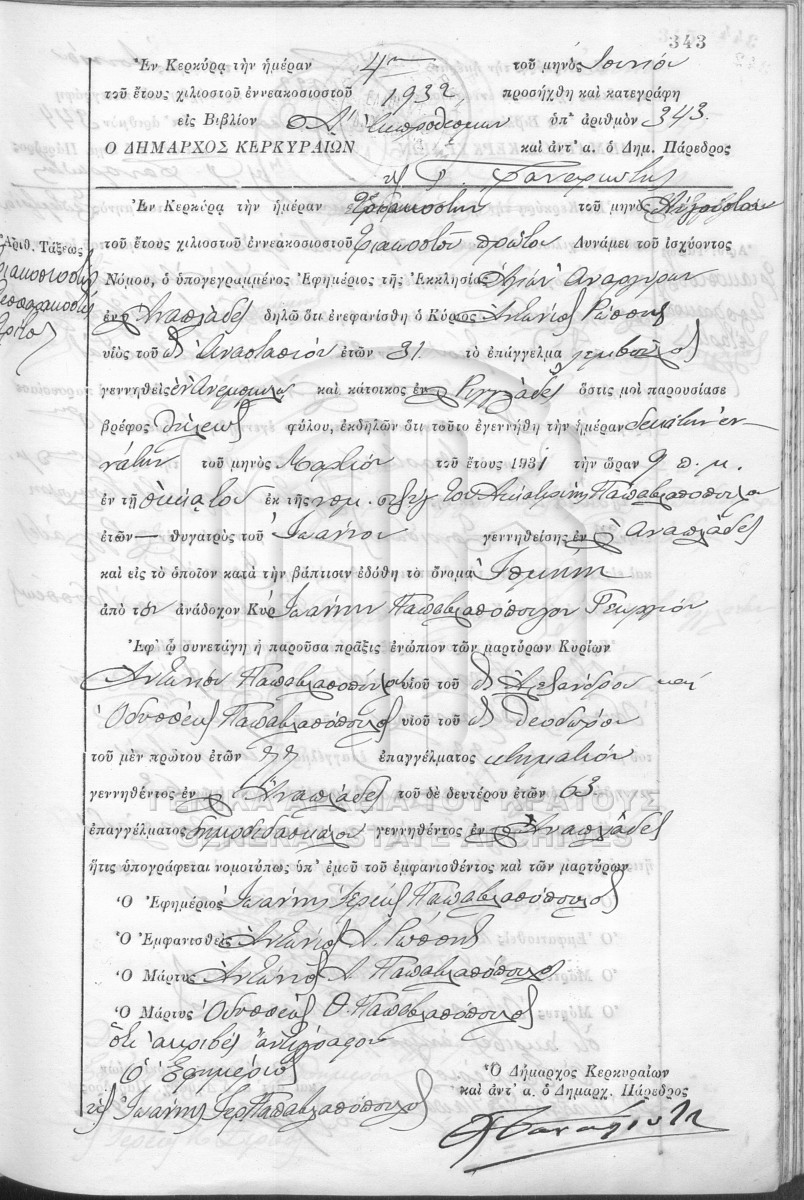 343
Ἐν Κερκύρᾳ τὴν ἡμέραν 4ην τοῦ μηνὸς Ἰουνίου
τοῦ ἔτους χιλιοστοῦ ἐννεακοσιοστοῦ 1932 προσήχθη καὶ κατεγράφη
εἰς Βιβλίον Α΄ Ἐκπροθέσμων ὑπ' ἀριθμὸν 343.
Ο ΔΗΜΑΡΧΟΣ ΚΕΡΚΥΡΑΙΩΝ καὶ ἀντ' α. ὁ Δημ. Πάρεδρος
Ἐν Κερκύρᾳ τὴν ἡμέραν τοῦ μηνὸς Αὐγούστου
Ἀριθ. Τάξεως
τοῦ ἔτους χιλιοστοῦ ἐννεακοσιοστοῦ τριακοστοῦ πρώτου Δυνάμει τοῦ ἰσχύοντος
Νόμου, ὁ ὑπογεγραμμένος Ἐφημέριος τῆς Ἐκκλησίας Ἁγίων Ἀναργύρων
ἐν Ἀναπλάδες δηλῶ ὅτι ἐνεφανίσθη ὁ Κύριος Ἀντώνιος
υἱὸς τοῦ Ἀναστασίου ἐτῶν 31 τὸ ἐπάγγελμα
γεννηθεὶς ἐν καὶ κάτοικος ἐν ὅστις μοὶ παρουσίασε
βρέφος θήλεως φύλου, ἐκδηλῶν ὅτι τοῦτο ἐγεννήθη τὴν ἡμέραν δεκάτην ἐν-
νάτην τοῦ μηνὸς Μαρτίου τοῦ ἔτους 1931 τὴν ὥραν 9 π.μ.
ἐν τῇ οἰκίᾳ του ἐκ τῆς νομ. συζύγ. του Αἰκατερίνης Παπαβλασοπούλου
ἐτῶν — θυγατρὸς τοῦ Ἰωάννου γεννηθείσης ἐν Ἀναπλάδες
καὶ εἰς τὸ ὁποῖον κατὰ τὴν βάπτισιν ἐδόθη τὸ ὄνομα Ἰσμήνη
ἀπὸ τὸν ἀνάδοχον Κύρ Ἰωάννην Παπαβλασόπουλον Γεωργίου
Ἐφ' ᾧ συνετάγη ἡ παροῦσα πρᾶξις ἐνώπιον τῶν μαρτύρων Κυρίων
Ἀντωνίου Παπαβλασοπούλου υἱοῦ τοῦ Ἀλεξάνδρου καὶ
Ὀδυσσέως Παπαβλασόπουλος υἱοῦ τοῦ Θεοδώρου
τοῦ μὲν πρώτου ἐτῶν 77 ἐπαγγέλματος κτηματίου
γεννηθέντος ἐν Ἀναπλάδες τοῦ δὲ δευτέρου ἐτῶν 63
ΓΕΝΙΚΑ ΑΡΧΕΙΑ ΤΟΥ ΚΡΑΤΟΥΣ
ἐπαγγέλματος δημοδιδασκάλου γεννηθέντος ἐν Ἀναπλάδες
GENERAL STATE ARCHIVES
ἥτις ὑπογράφεται νομοτύπως ὑπ' ἐμοῦ τοῦ ἐμφανισθέντος καὶ τῶν μαρτύρων.
Ὁ Ἐφημέριος Ἰωάννης Ἱερεὺς Παπαβλασόπουλος
Ὁ Ἐμφανισθεὶς Ἀντώνιος Α.
Ὁ Μάρτυς Ἀντώνιος Α. Παπαβλασόπουλος
Ὁ Μάρτυς Ὀδυσσεὺς Θ. Παπαβλασόπουλος
ὅτι ἀκριβὲς ἀντίγραφον
Ὁ Ἐφημέριος
Ἰωάννης Ἱερ. Παπαβλασόπουλος
Ὁ Δήμαρχος Κερκυραίων
καὶ ἀντ' α. ὁ Δημαρχ. Πάρεδρος